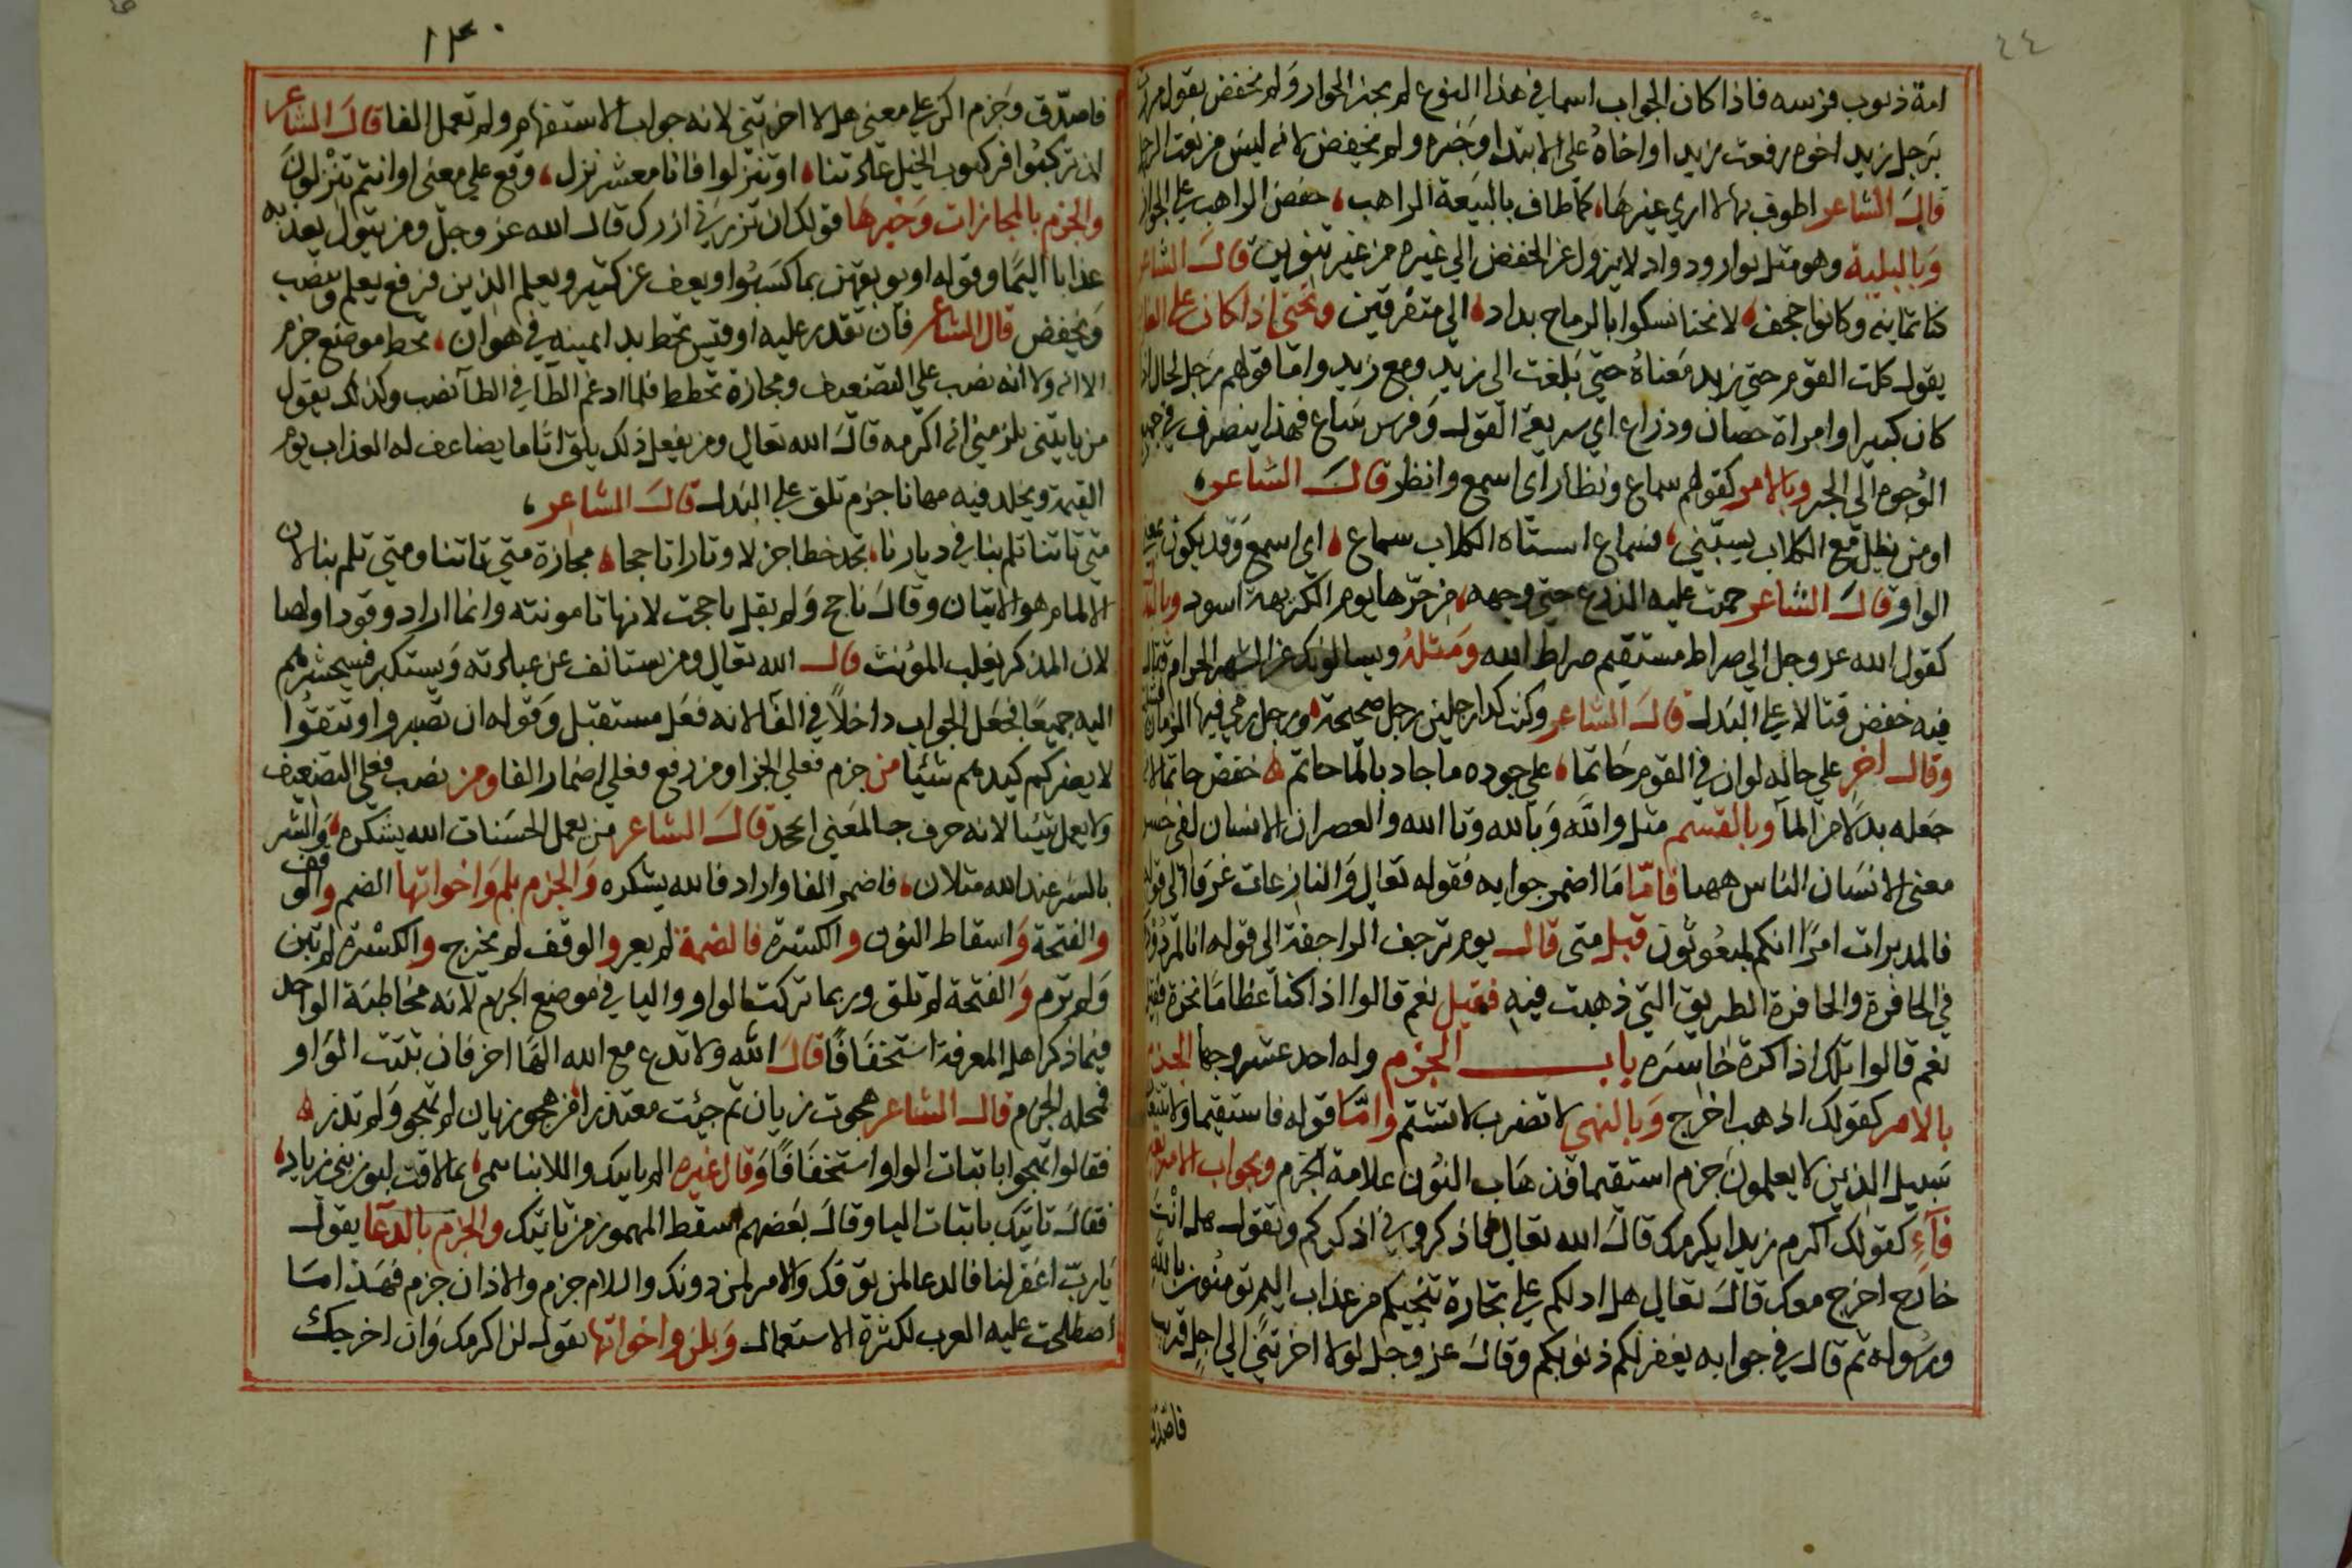 ٤٤
امة ذنوب فرسه فاذا كان الجواب اسما في هذا النوع لم يجز الجوار ولم يخفض يقول مررت
برجل زيد اخوه رفعت زيد او اخاه على الابتدا وخبره ولم يخفض لانه ليس من نعت الرجل
قال الشاعر اطوف بها لا اري غيرها، كما طاف بالبيعة الراهب، خفض الراهب علي الجوار
وبالبلية وهو مثل بوار ودواد لا يزول عن الخفض الي غيره من غير تنوين قال الشاعر
كنا ثمانية وكانوا جحف، لا نحنا نسكوا بالرماح بداد، الي متفرقين وبحتى اذا كان علي الغاية
يقول كلت القوم حتي زيد معناه حتي بلغت الى زيد ومع زيد واما قولهم رجل لحال
كان كبيرا وامراة حصان وذراع اي سريعة القول وفرس شاع فهذا ينصرف في جميع
الوجوه الي الجر وبالامر كقولهم سماع ونظار اى اسمع وانظر قال الشاعر،
اومن يظل مع الكلاب يسبني، فسماع استاه الكلاب سماع، اى اسمع وقد يكون بمعني
الواو قال الشاعر حمت عليه الدرع حتي وجهه، من حرها يوم الكريهة اسود وبالبدل
كقول الله عز وجل الي صراط مستقيم صراط الله ومثله ويسالونك عن الشهر الحرام قتال
فيه خفض قتالا علي البدل قال الشاعر وكنت كذا رجلين رجل صحيحة، ورجل رمي فيها الزمان
وقال اخر علي حاله لو ان في القوم حاتما، علي جوده ما جاد بالما حاتم، خفض حاتما لانه
جعله بدلا من الما وبالقسم مثل والله وبالله وتا الله والعصر ان الانسان لفي خسر
معنى الانسان الناس ههنا فاما ما اضمر جوابه فقوله تعالي والنازعات غرقا الي قوله
فالمدبرات امرا انكم لمبعوثون قبل متى قال يوم ترجف الراجفة الى قوله انا لمردودون
في الحافرة والحافرة الطريق التي ذهبت فيه فقيل نعم قالوا اذا كنا عظاما نخرة فقيل
نعم قالوا تلك اذا كرة خاسره باب الجزم وله احد عشر وجها الجزم
بالامر كقولك اذهب اخرج وبالنهي لا تضرب لا تشتم واما قوله فاستقيما ولا تتبعان
سبيل الذين لا يعلمون جزم استقيما فذهاب النون علامة الجزم وبجواب الامر بغير
فآء كقولك اكرم زيدا يكرمك قال الله تعالي فاذكروني اذكركم وتقول هل انت
خارج اخرج معك قال تعالي هل ادلكم علي تجارة تنجيكم من عذاب اليم تومنون بالله
ورسوله ثم قال في جوابه يغفر لكم ذنوبكم وقال عز وجل لولا اخرتني الي اجل قريب
فاصدق
١٣٠
فاصدق وجزم اكن علي معنى هلا اخرتني لانه جواب الاستفهام ولم تعمل الفا قال الشاعر
ان تركبوا فركوب الخيل عادتنا، او تنزلوا فانا معشر نزل، وقع علي معنى او انتم تنزلون
والجزم بالمجازات وخبرها قولك ان تزرني ازرك قال الله عز وجل ومن يتول يعذبه
عذابا اليما وقوله او يوبقهن بما كسبوا ويعف عن كثير ويعلم الذين فرفع يعلم ونصب
وخفض قال الشاعر فان تقدر عليه او قبيس تحط بد ايمينه في هوان، تحط موضع جزم
الا انه ولا انه نصب علي التضعيف ومجازة تخطط فلما ادغم الطا في الطا نصب وكذلك يقول
من ياتيني يلزمني ان اكرمه قال الله تعالي ومن يفعل ذلك يلق اثاما يضاعف له العذاب يوم
القيمة ويخلد فيه مهانا جزم تلق علي البدل قال الشاعر،
متي تاتنا تلمم بنا في ديارنا، تجد حطبا جزلا ونارا تاججا، مجازة متي تاتنا ومتي تلم بنا لان
الالمام هو الاتيان وقال تاجج ولم يقل تاججت لانها نا مونثه وانما اراد وقودا ولصا
لان المذكر يغلب المؤنث قال الله تعالي ومن يستانف عن عبادته ويستكبر فسيحشرهم
اليه جميعا فجعل الجواب داخلا في الفا لانه فعل مستقبل وقوله ان تصبروا وتتقوا
لا يضركم كيدهم شئيا من جزم فعلي الجزا ومن رفع فعلي اضمار الفا ومن نصب فعلي التضعيف
ولا يعمل شيئا لانه حرف جا لمعني الجحد قال الشاعر من يعمل الحسنات الله يشكره، والشر
بالشر عند الله مثلان، فاضمر الفا واراد فالله يشكره والجزم بلم واخواتها الضم والوقف
والفتحة واسقاط النون والكسرة فالضمة لم يعر والوقف لم يخرج والكسرة لم تبن
ولم ترم والفتحة لم تلق وربما تركت الواو واليا في موضع الجزم لانه مخاطبة الواحد
فيما ذكر اهل المعرفة استخفافا قال الله ولا تدع مع الله الها اخر فان ثبتت الواو
فمحله الجزم قال الشاعر هجوت زيان ثم جئت معتذرا، من هجو زيان لم تهجو ولم تذر،
فقالوا تهجوا باثبات الواو استخفافا وقال غيره الم ياتيك والانبا تنمي، بما لاقت لبون بني زياد،
فقال تاتيك باثبات اليا وقال بعضهم اسقط المهموز من تاتيك والجزم بالدعا يقول
يا رب اغفر لنا فالدعا لمن فوقك والامر لمن دونك واللام جزم والاذان جزم فهذا مما
اصطلحت عليه العرب لكثرة الاستعمال وبلن واخواتها تقول لن اكرمك وان اخرجك